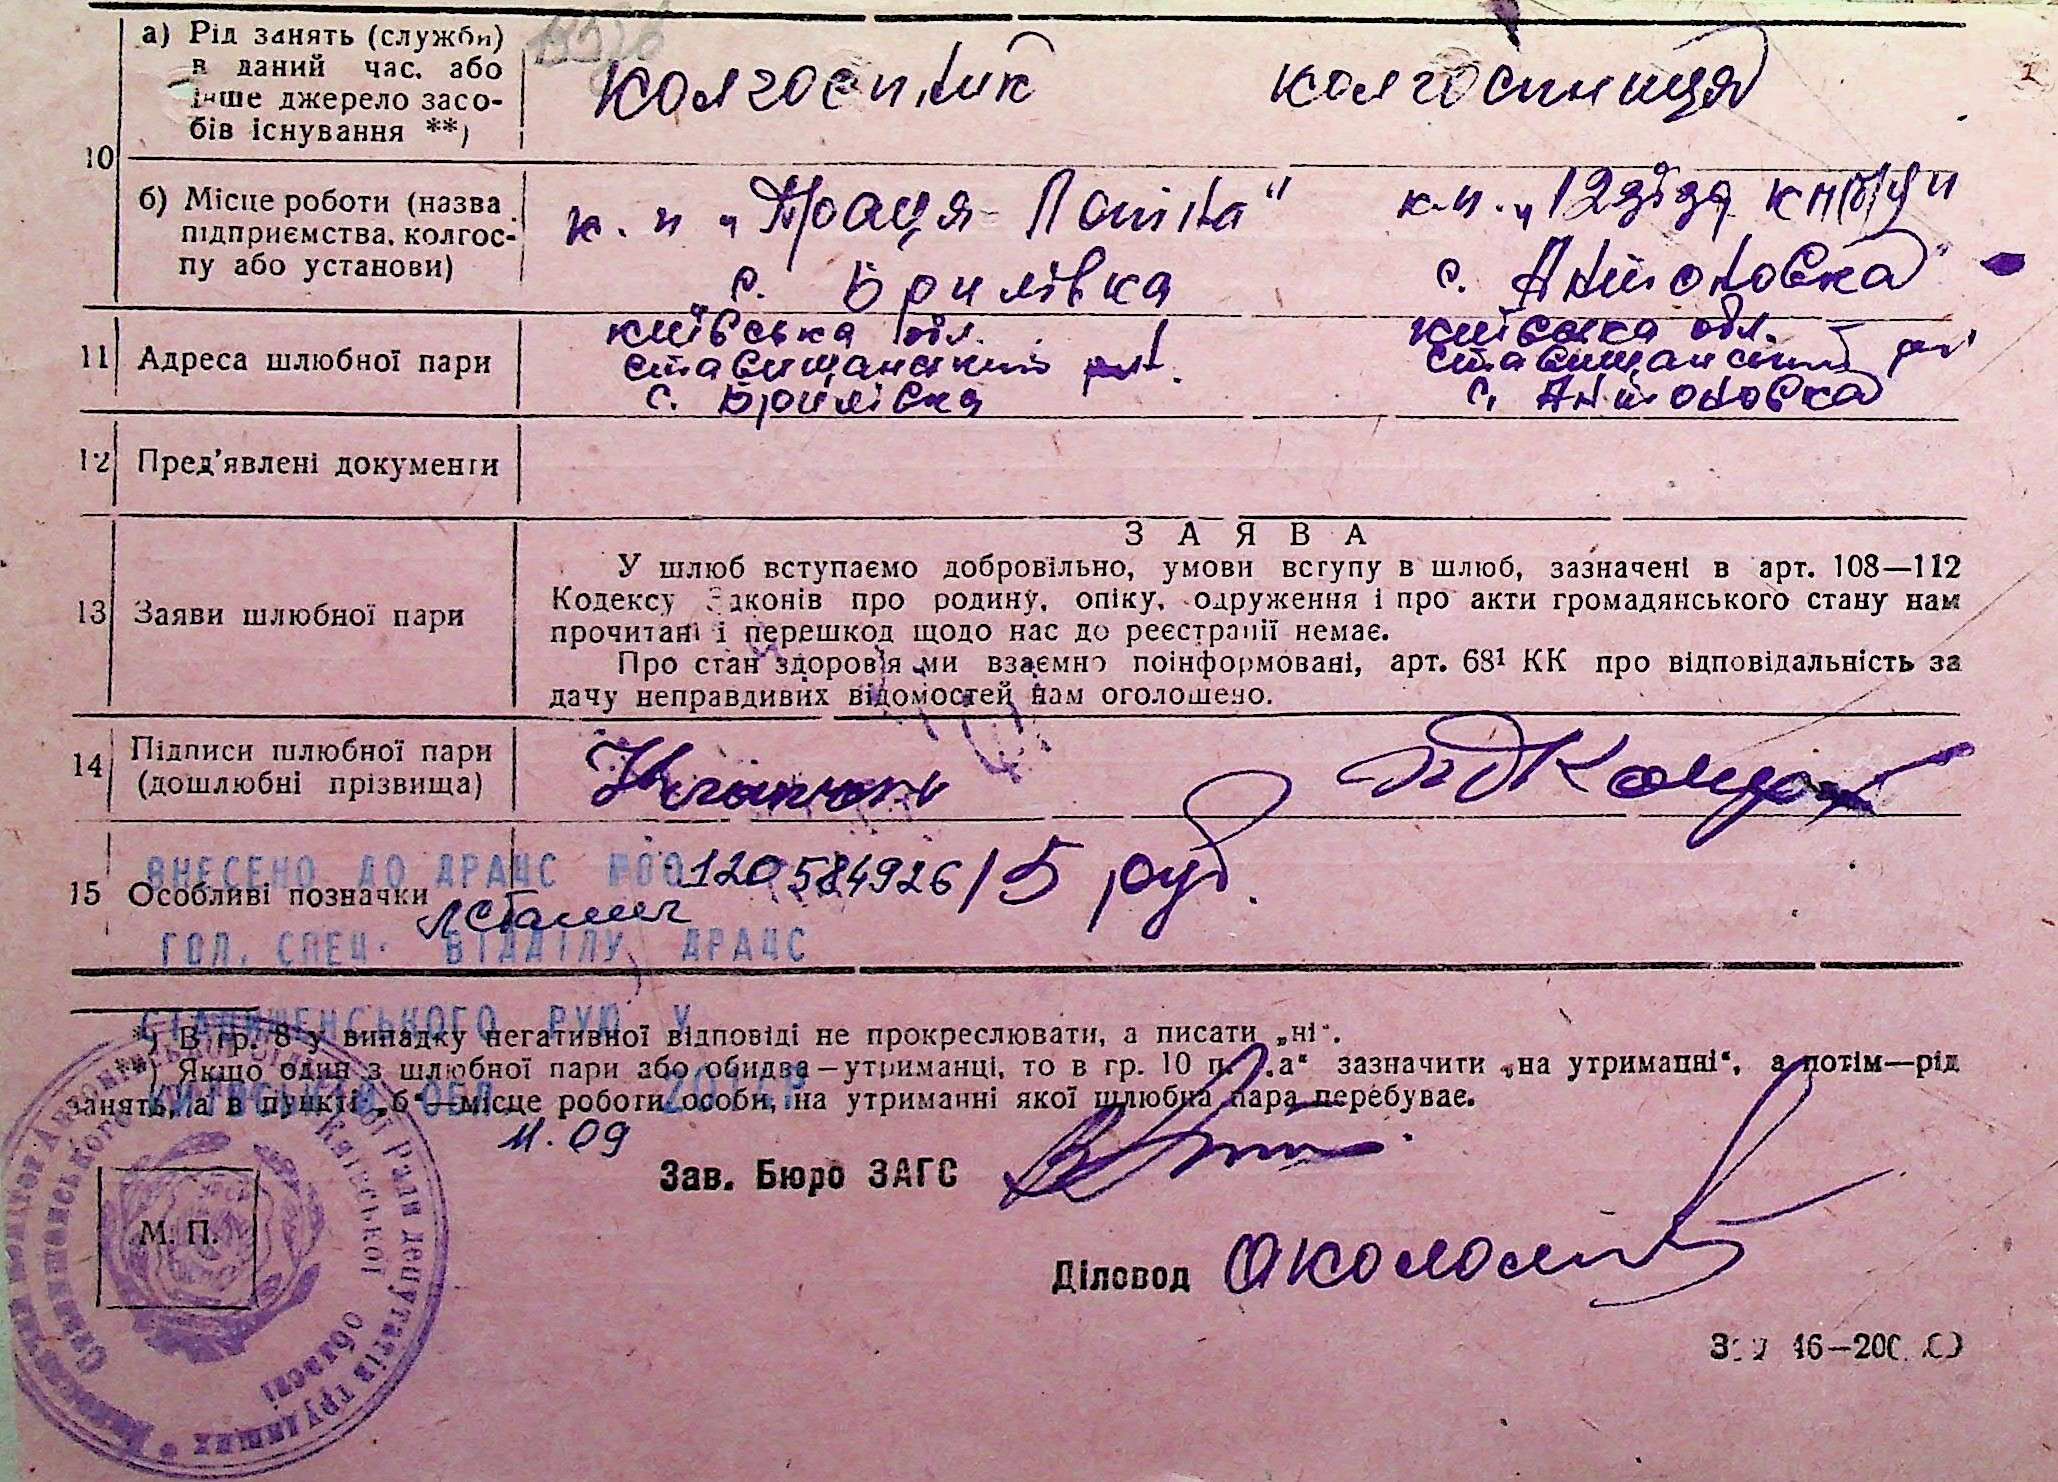 а) Рід занять (служби)
в даний час, або
інше джерело засо-
бів існування **)
колгоспник колгоспниця
10
б) Місце роботи (назва
підприємства, колгос-
пу або установи)
к. п „Праця Леніна“ к-п. „12
с. Брилівка с. Антоновка
11 Адреса шлюбної пари
Київська обл. Київська обл.
Ставищанський р-н. Ставищанський р-н
с. Брилівка с. Антоновка
12 Пред'явлені документи
З А Я В А
13 Заяви шлюбної пари
У шлюб вступаємо добровільно, умови вступу в шлюб, зазначені в арт. 108—112
Кодексу Законів про родину, опіку, одруження і про акти громадянського стану нам
прочитані і перешкод щодо нас до реєстрації немає.
Про стан здоров'я ми взаємно поінформовані, арт. 68¹ КК про відповідальність за
дачу неправдивих відомостей нам оголошено.
14 Підписи шлюбної пари
(дошлюбні прізвища)
ВНЕСЕНО ДО ДРАЦС №00120584926 15 руб.
15 Особливі позначки
ГОЛ. СПЕЦ. ВІДДІЛУ ДРАЦС
СТАВИЩЕНСЬКОГО РУЮ У
*) В гр. 8 у випадку негативної відповіді не прокреслювати, а писати „ні“.
**) Якщо один з шлюбної пари або обидва—утриманці, то в гр. 10 п. „а“ зазначити „на утриманні“, а потім—рід
занять, а в пункті „б“—місце роботи особи, на утриманні якої шлюбна пара перебуває.
КИЇВСЬКІЙ ОБЛ. 2014Р
11.09
Зав. Бюро ЗАГС
М. П.
Діловод